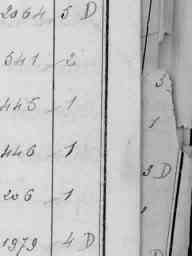 2064 5 D
541 2
445 1
446 1
206 1
1979 4 D
5
1
3 D
1
D